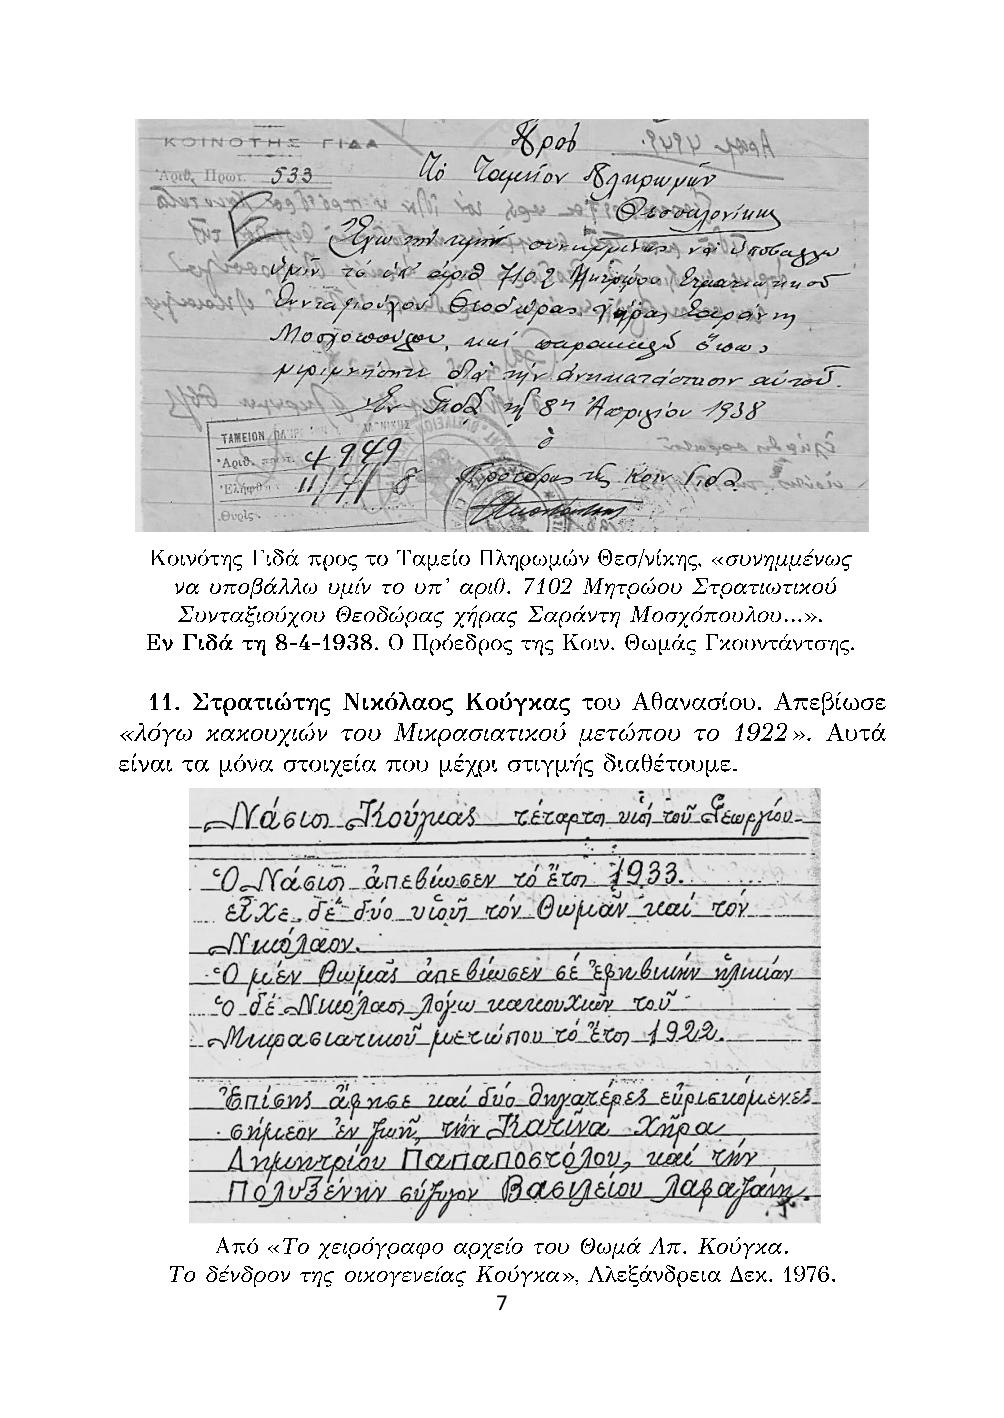 ΚΟΙΝΟΤΗΣ ΓΙΔΑ
Ἀριθ. Πρωτ. 533
Πρός
Τό Ταμεῖον Πληρωμῶν
Θεσσαλονίκης
Ἔχω τήν τιμήν συνημμένως νά ὑποβάλλω
ὑμῖν τό ὑπ' ἀριθ 7102 Μητρῶον Στρατιωτικοῦ
Συνταξιούχου Θεοδώρας χήρας Σαράντη
Μοσχοπούλου, καί παρακαλῶ ὅπως
μεριμνήσητε διά τήν ἀντικατάστασιν αὐτοῦ.
Ἐν Γιδᾷ τῇ 8ῃ Ἀπριλίου 1938
ὁ
Πρόεδρος τῆς Κοιν Γιδᾶ
ΤΑΜΕΙΟΝ
Ἀριθ. πρωτ. 4949
Ἐλήφθη 11/7/8
Θυρίς
Κοινότης Γιδά προς το Ταμείο Πληρωμών Θεσ/νίκης, «συνημμένως
να υποβάλλω υμίν το υπ’ αριθ. 7102 Μητρώου Στρατιωτικού
Συνταξιούχου Θεοδώρας χήρας Σαράντη Μοσχόπουλου...».
Εν Γιδά τη 8-4-1938. Ο Πρόεδρος της Κοιν. Θωμάς Γκουντάντσης.
11. Στρατιώτης Νικόλαος Κούγκας του Αθανασίου. Απεβίωσε
«λόγω κακουχιών του Μικρασιατικού μετώπου το 1922». Αυτά
είναι τα μόνα στοιχεία που μέχρι στιγμής διαθέτουμε.
Νάσιος Κούγκας τέταρτος υἱός τοῦ Γεωργίου
Ὁ Νάσιος ἀπεβίωσεν τό ἔτος 1933.
εἶχε δέ δύο υἱούς τόν Θωμᾶν καί τόν
Νικόλαον.
Ὁ μέν Θωμᾶς ἀπεβίωσεν σέ ἐφηβικήν ἡλικίαν
ὁ δέ Νικόλαος λόγω κακουχιῶν τοῦ
Μικρασιατικοῦ μετώπου τό ἔτος 1922.
Ἐπίσης ἄφησε καί δύο θηγατέρες εὑρισκόμενες
σήμερον ἐν ζωῇ, τήν Κατίνα χήρα
Δημητρίου Παπαποστόλου, καί τήν
Πολυξένην σύζυγον Βασιλείου Λαφαζάνη.
Από «Το χειρόγραφο αρχείο του Θωμά Απ. Κούγκα.
Το δένδρον της οικογενείας Κούγκα», Αλεξάνδρεια Δεκ. 1976.
7